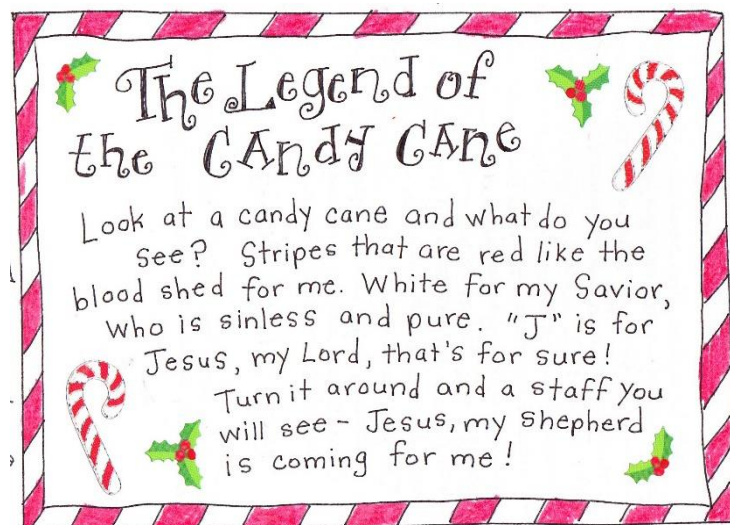 The Legend of
the CANdy CANe
Look at a candy cane and what do you
see? Stripes that are red like the
blood shed for me. White for my Savior,
who is sinless and pure. "J" is for
Jesus, my Lord, that's for sure!
Turn it around and a staff you
will see - Jesus, my shepherd
is coming for me!